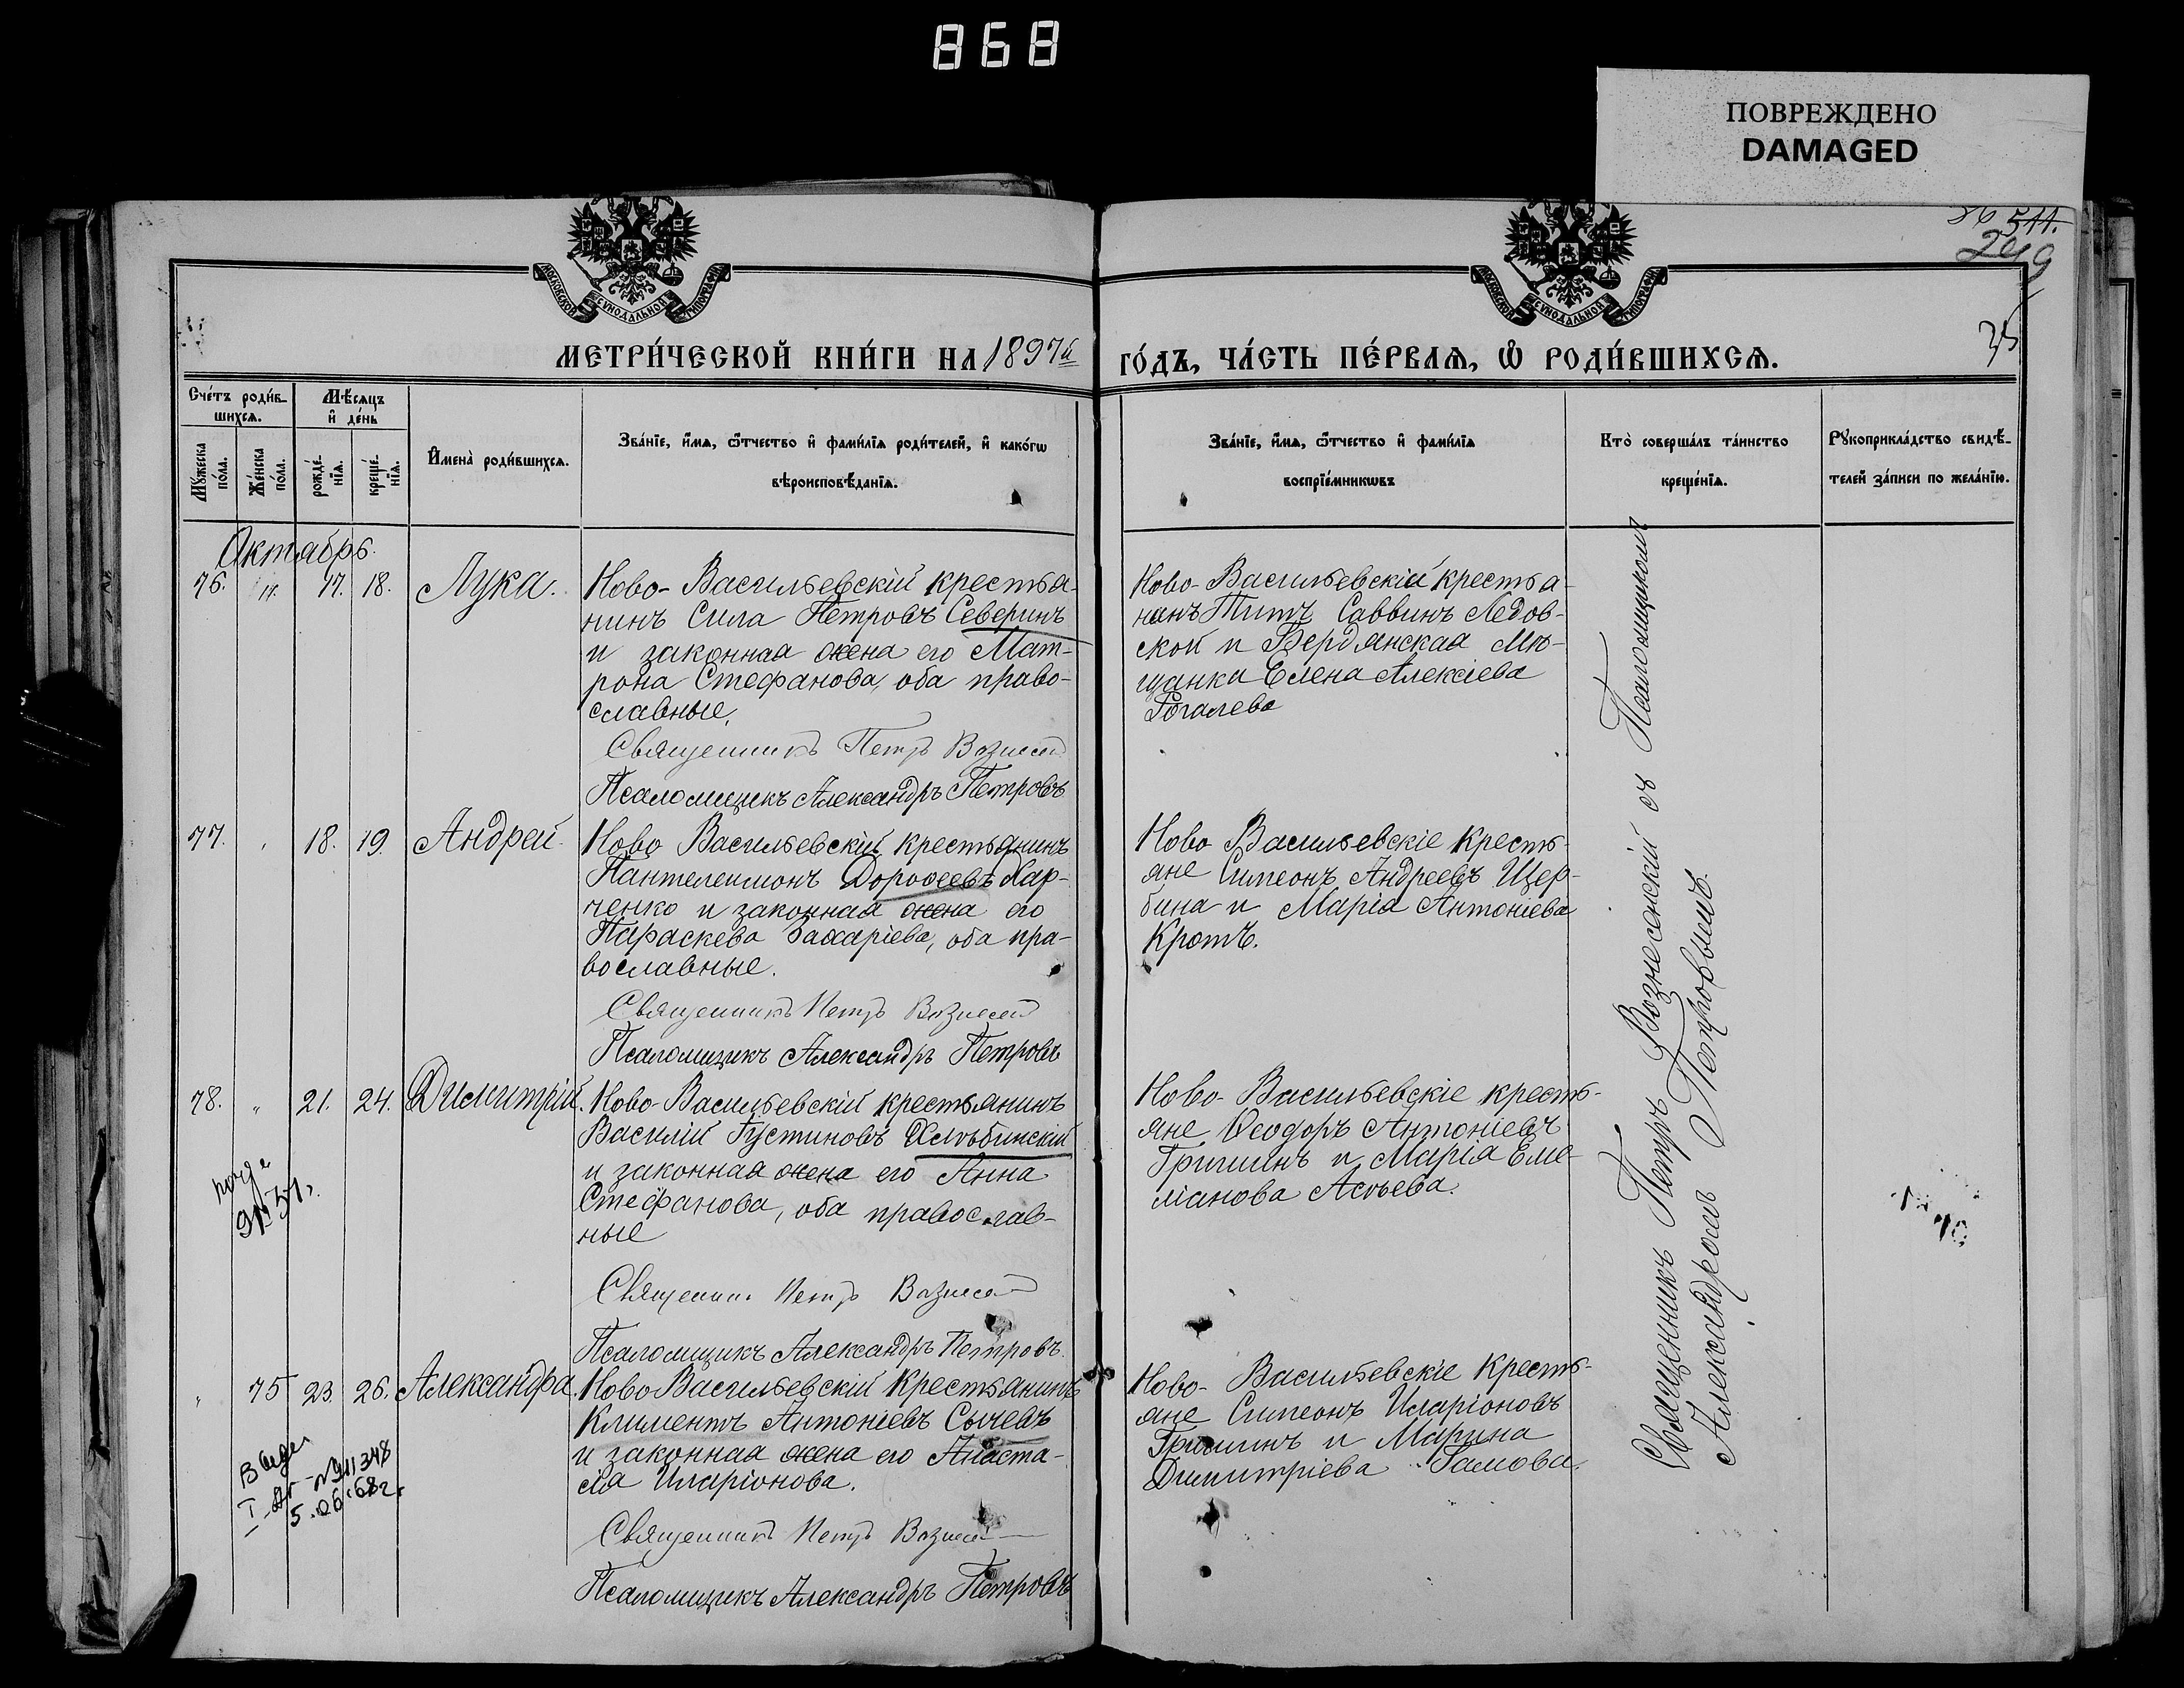 868
ПОВРЕЖДЕНО
DAMAGED
511.
249
35
МОСКОВСКОЙ СѴНОДАЛЬНОЙ ТИПОГРАФІИ
МОСКОВСКОЙ СѴНОДАЛЬНОЙ ТИПОГРАФІИ
МЕТРИ́ЧЕСКОЙ КНИ́ГИ НА 1897й
ГО́ДЪ, ЧА́СТЬ ПЕ́РВАѦ, Ѡ҆ РОДИ́ВШИХСѦ.
Сче́тъ роди́в-
шихсѧ.
Мѣ́сѧцъ
и҆ де́нь
Мꙋ́жеска
по́ла.
Же́нска
по́ла.
рожде́-
нїѧ.
креще́-
нїѧ.
И҆мена̀ роди́вшихсѧ.
Зва́нїе, и҆́мѧ, ѻ҆́тчество и҆ фами́лїѧ роди́телей, и҆ како́гѡ
вѣроисповѣ́данїѧ.
Зва́нїе, и҆́мѧ, ѻ҆́тчество и҆ фами́лїѧ
воспрїе́мникѡвъ
Кто̀ соверша́лъ та́инство
креще́нїѧ.
Рꙋкоприкла́дство свидѣ́-
телей за́писи по жела́нїю.
Октябрь.
76. " 17. 18. Лука.
Ново-Васильевскій крестья-
нинъ Сила Петровъ Северинъ
и законная жена его Мат-
рона Стефанова, оба право-
славные.
Священникъ Петръ Вознесен
Псаломщикъ Александръ Петровъ
Ново-Васильевскій крестья-
нинъ Титъ Саввинъ Ледов-
ской и Бердянская Мѣ-
щанка Елена Алексіева
Рогалева
77. 18. 19. Андрей.
Ново Васильевскій крестьянинъ
Пантелеимонъ Дороѳеевъ Хар-
ченко и законная жена его
Параскева Захаріева, оба пра-
вославные.
Священникъ Петръ Вознесен
Псаломщикъ Александръ Петровъ
Ново Васильевскіе кресть-
яне Симеонъ Андреевъ Щер-
бина и Марія Антоніева
Кротъ.
78. " 21. 24. Димитрій.
Ново-Васильевскій крестьянинъ
Василій Густиновъ Хлѣбинскій
и законная жена его Анна
Стефанова, оба православ-
ные
Священникъ Петръ Вознесен
Псаломщикъ Александръ Петровъ.
Ново-Васильевскіе кресть-
яне Ѳеодоръ Антоніевъ
Гришинъ и Марія Еме-
ліанова Асѣева.
" 75 23. 26. Александра.
Ново Васильевскій крестьянинъ
Климентъ Антоніевъ Сычевъ
и законная жена его Анаста-
сія Иларіонова.
Священникъ Петръ Вознесен
Псаломщикъ Александръ Петровъ
№11348
5.06.68г.
Ново-Васильевскіе кресть-
яне Симеонъ Иларіоновъ
Гришинъ и Марина
Димитріева Гамова.
Священникъ Петръ Вознесенскій съ Псаломщикомъ
Александромъ Петровымъ.